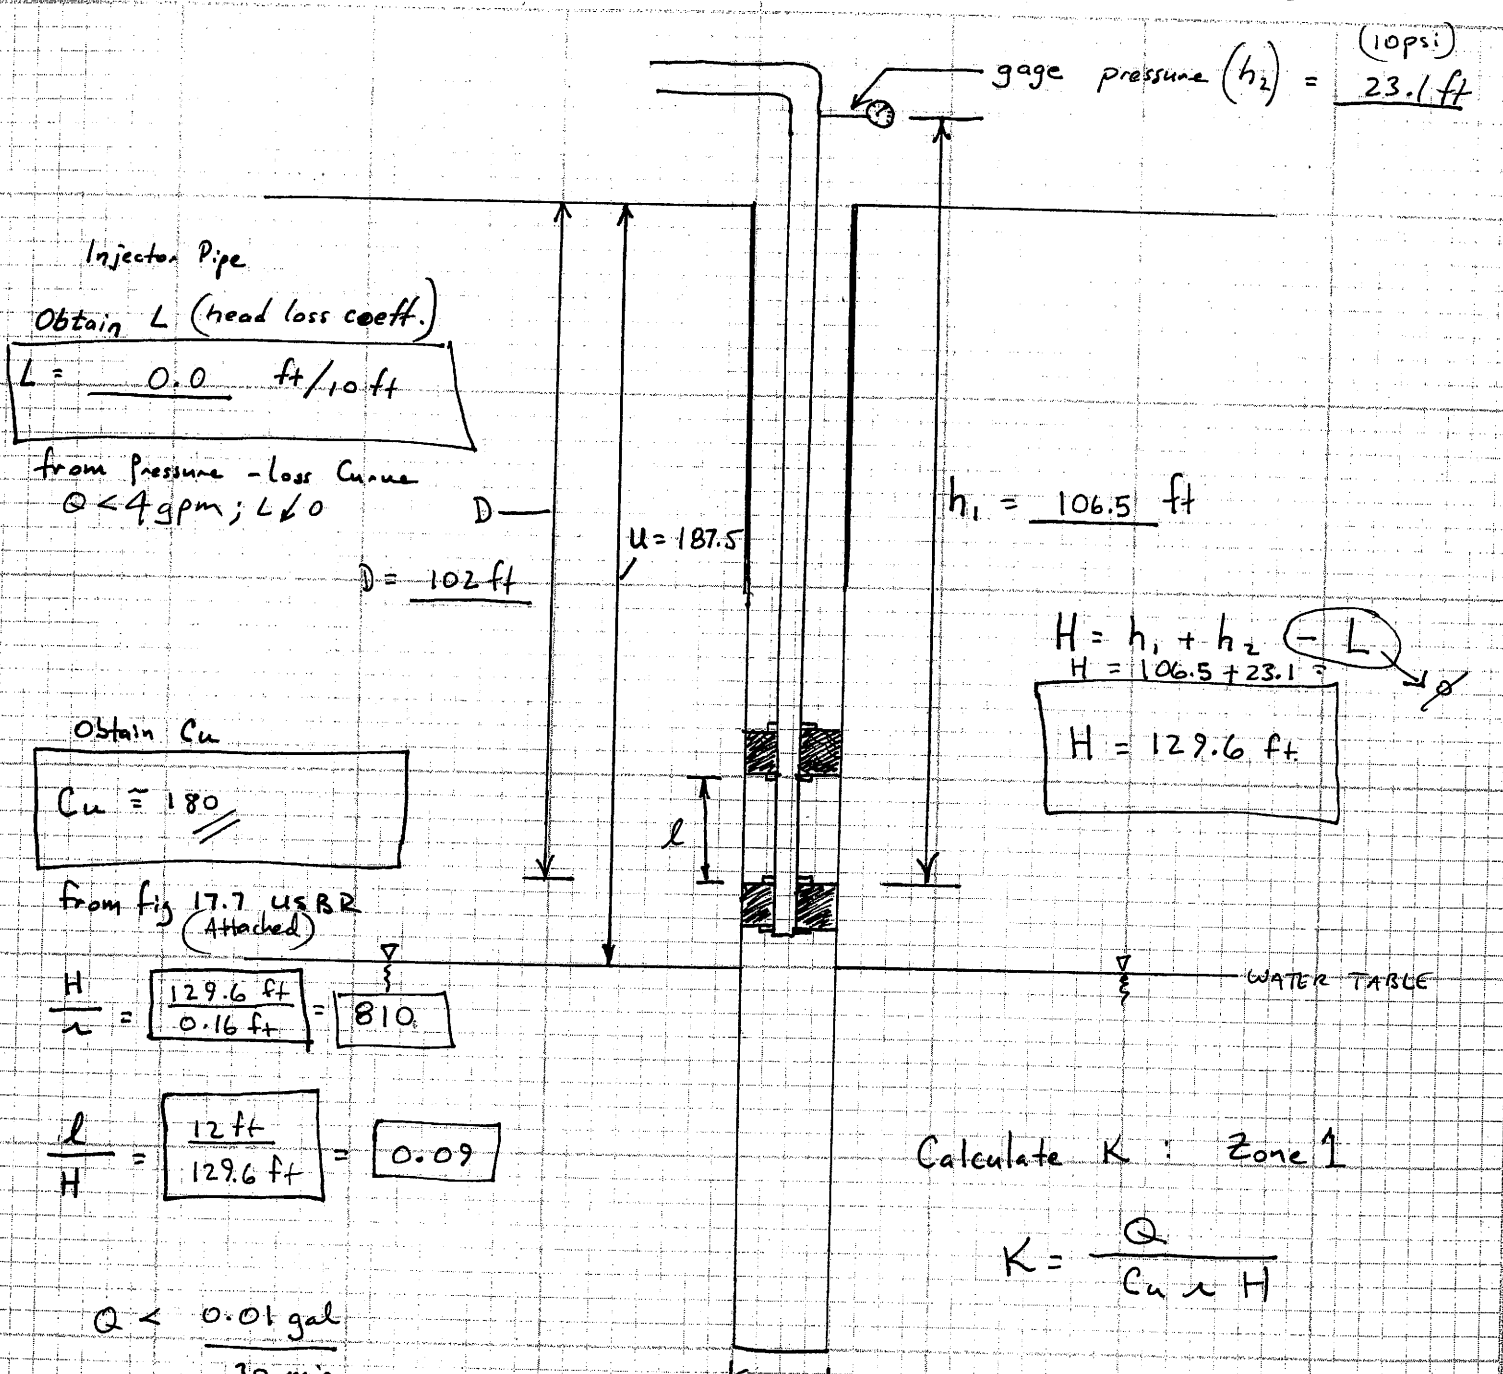 (10psi)
gage pressure (h₂) = 23.1 ft
Injector Pipe
Obtain L (head loss coeff.)
L = 0.0 ft/10 ft
from Pressure - Loss Curve
Q < 4 gpm; L ↓ 0
D
D = 102 ft
U = 187.5
h₁ = 106.5 ft
H = h₁ + h₂ - L
H = 106.5 + 23.1 =
∅
H = 129.6 ft
Obtain Cu
Cu ≅ 180
l
from fig 17.7 USBR
(Attached)
WATER TABLE
H/r = 129.6 ft/0.16 ft = 810
l/H = 12 ft/129.6 ft = 0.09
Calculate K : Zone 1
K = Q/Cu r H
Q < 0.01 gal